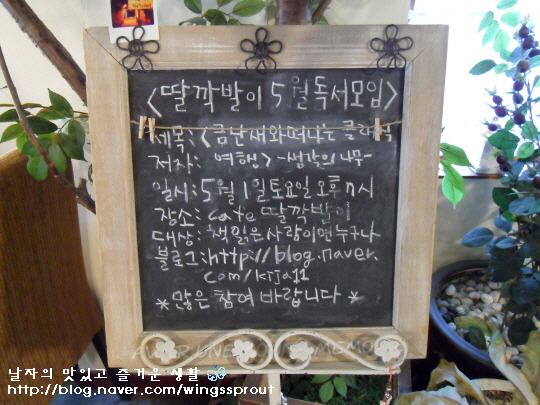 <딸깍발이 5월독서모임>
제목:<금난새와떠나는 클래식
저자: 여행> -생각의 나무-
일시:5월1일토요일오후7시
장소: cafe 딸깍발이
대상: 책읽은사람이면누구나
블로그:http://blog.naver.
com/kija11
*많은 참여 바랍니다*
MEMO
날자의 맛있고 즐거운 생활
http://blog.naver.com/wingssprout